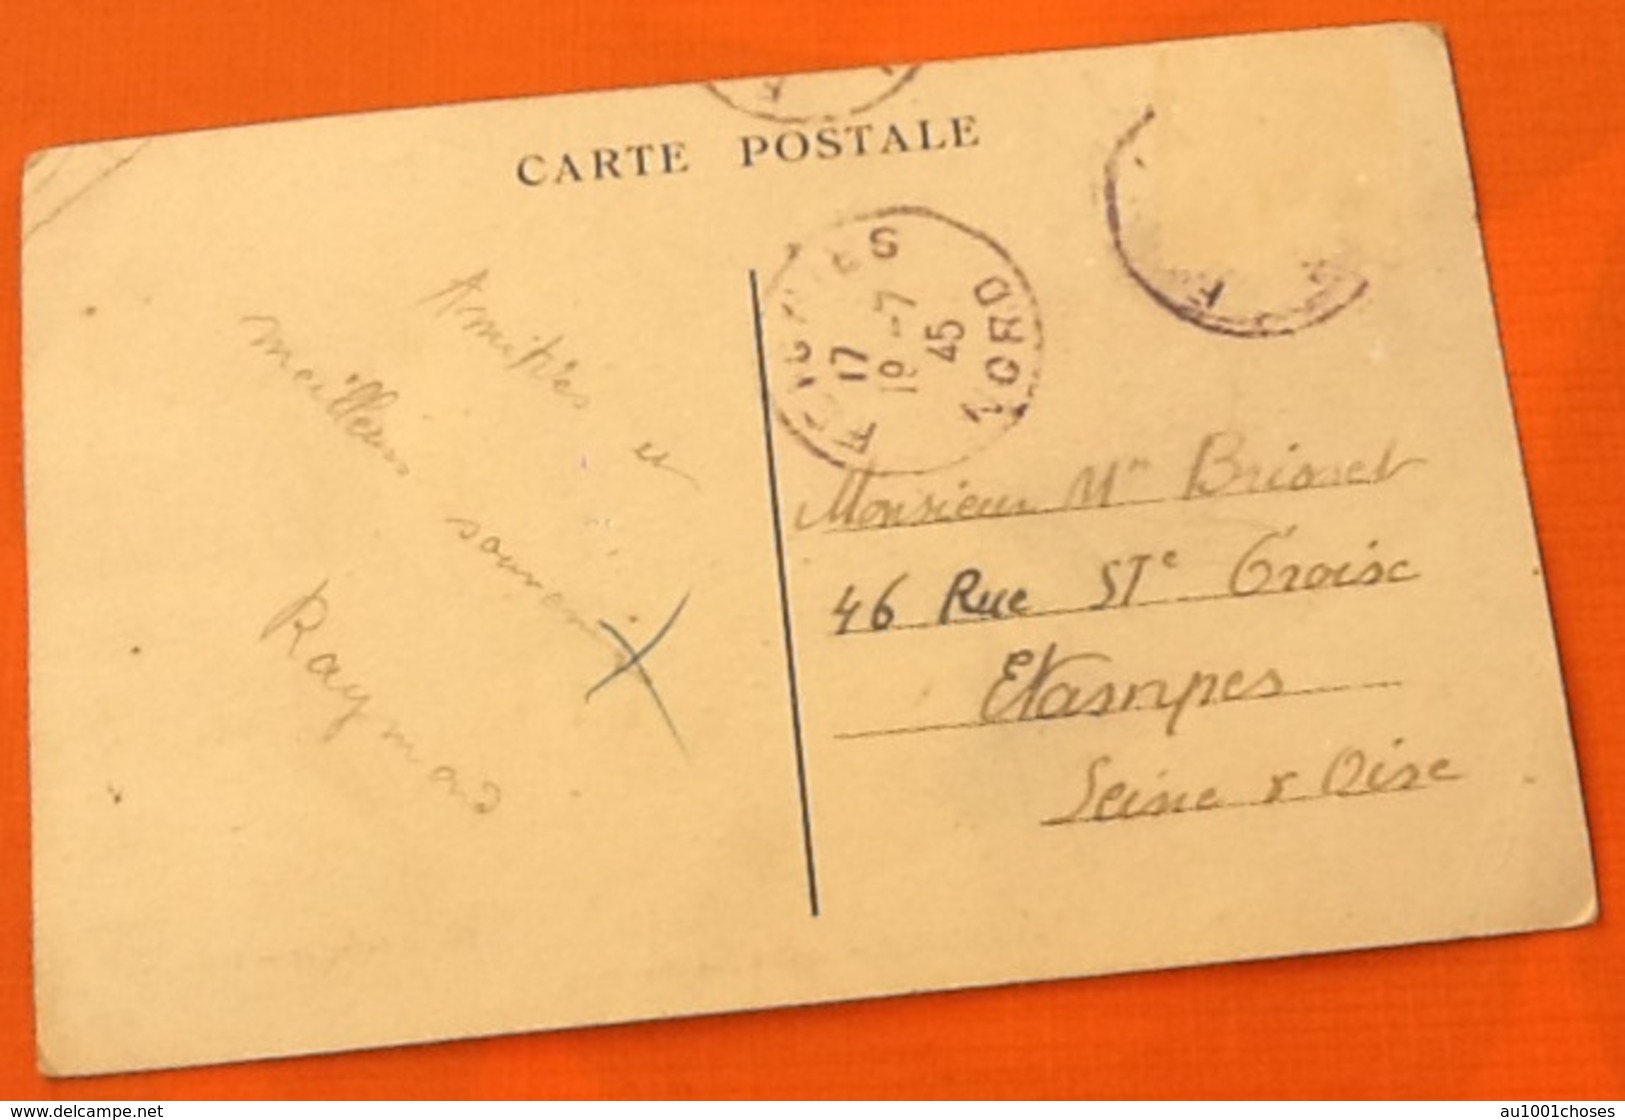 CARTE POSTALE
Amitiés et
meilleurs souvenirs
Raymond
17
19-7
45
NORD
F
Monsieur Mr
46 Rue STe Croise
Etampes
Seine & Oise
www.delcampe.net
au1001choses